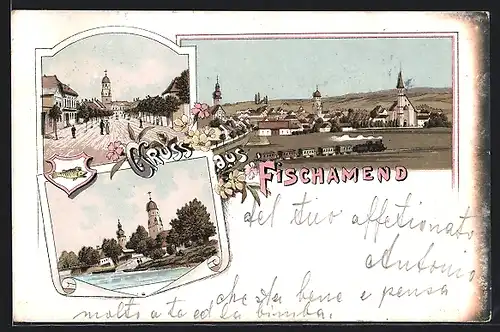 GRUSS AUS
FISCHAMEND
del tuo affetionato
Antonio
che sta bene e pensa
molto a te ed la bimba.